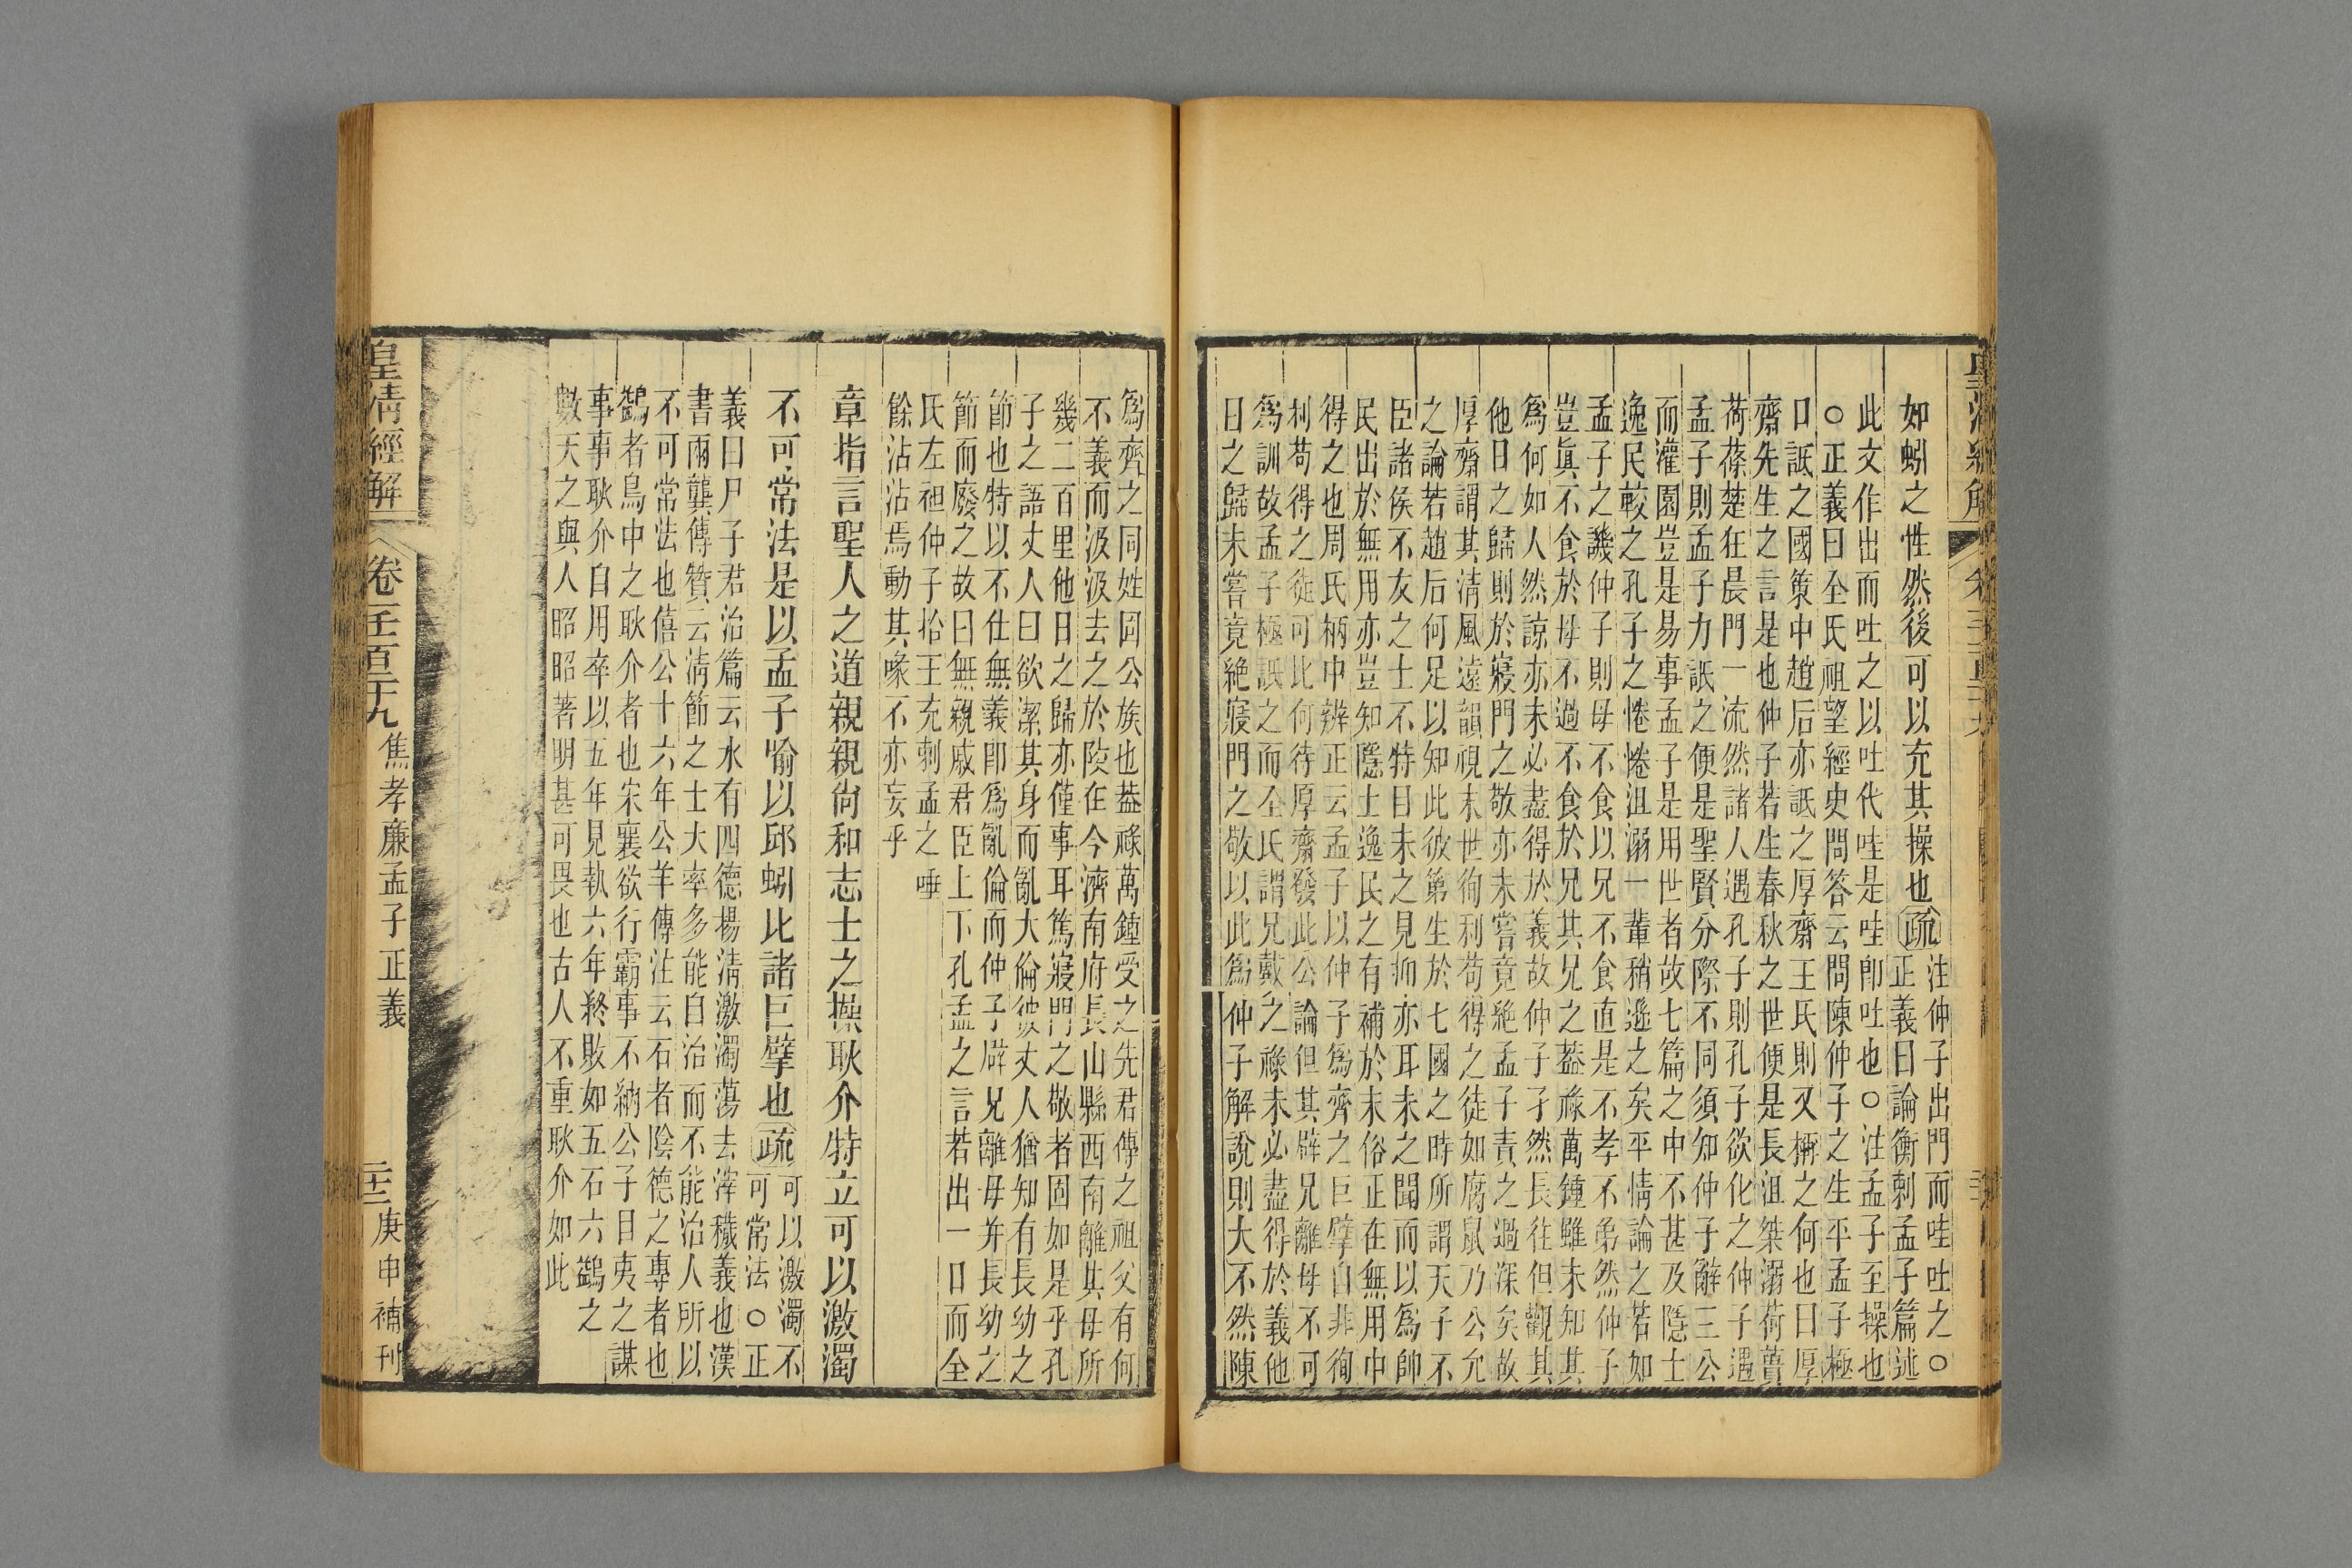 如蚓之性然後可以充其操也疏
注仲子出門而哇吐之○
正義曰論衡刺孟子篇述
此文作出而吐之以吐代哇是哇即吐也○注孟子至操也
○正義曰全氏祖望經史問答云問陳仲子之生平孟子極
口詆之國策中趙后亦詆之厚齋王氏則又稱之何也曰厚
齋先生之言是也仲子若生春秋之世便是長沮桀溺荷蕢
荷蓧楚狂晨門一流然諸人遇孔子則孔子欲化之仲子遇
孟子則孟子力詆之便是聖賢分際不同須知仲子辭三公
而灌園豈是易事孟子是用世者故七篇之中不甚及隱士
逸民較之孔子之惓惓沮溺一輩稍遜之矣平情論之若如
孟子之譏仲子則母不食以兄不食直是不孝不弟然仲子
豈眞不食於母不過不食於兄其兄之蓋祿萬鍾雖未知其
爲何如人然諒亦未必盡得於義故仲子孑然長往但觀其
他日之歸則於寢門之敬亦未嘗竟絕孟子責之過深矣故
厚齋謂其清風遠韻視末世徇利苟得之徒如腐鼠乃公允
之論若趙后何足以知此彼第生於七國之時所謂天子不
臣諸侯不友之士不特目未之見抑亦耳未之聞而以爲帥
民出於無用亦豈知隱士逸民之有補於末俗正在無用中
得之也周氏柄中辨正云孟子以仲子爲齊之巨擘自非徇
利苟得之徒可比何待厚齋發此公論但其辟兄離母不可
爲訓故孟子極詆之而全氏謂兄戴之祿未必盡得於義他
日之歸未嘗竟絕寢門之敬以此爲仲子解說則大不然陳
爲齊之同姓固公族也蓋祿萬鍾受之先君傳之祖父有何
不義而汲汲去之於陵在今濟南府長山縣西南離其母所
幾二百里他日之歸亦僅事耳篤寢門之敬者固如是乎孔
子之語丈人曰欲潔其身而亂大倫彼丈人猶知有長幼之
節也特以不仕無義卽爲亂倫而仲子辟兄離母并長幼之
節而廢之故曰無親戚君臣上下孔孟之言若出一口而全
氏左袒仲子拾王充刺孟之唾
餘沾沾焉動其喙不亦妄乎
章指言聖人之道親親尙和志士之操耿介特立可以激濁
不可常法是以孟子喻以邱蚓比諸巨擘也疏
可以激濁不
可常法○正
義曰尸子君治篇云水有四德揚淸激濁蕩去滓穢義也漢
書兩龔傳贊云淸節之士大率多能自治而不能治人所以
不可常法也僖公十六年公羊傳注云石者陰德之專者也
鷁者鳥中之耿介者也宋襄欲行霸事不納公子目夷之謀
事事耿介自用卒以五年見執六年終敗如五石六鷁之
數天之與人昭昭著明甚可畏也古人不重耿介如此
皇清經解 卷一千一百二十九 焦孝廉孟子正義 二十二 庚申補刊